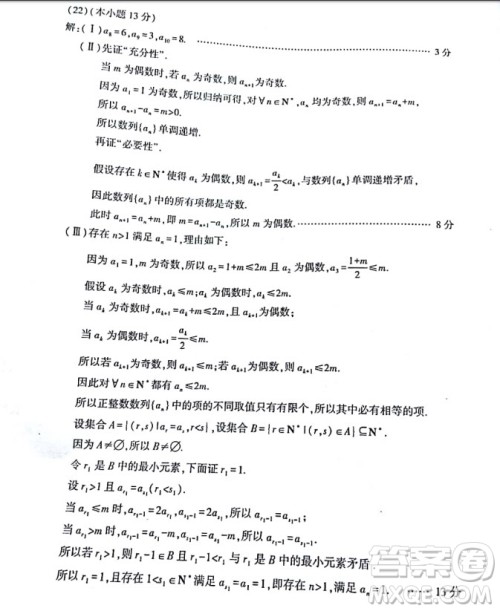 (22)(本小题13分)
解:(Ⅰ)a₈=6,a₉=3,a₁₀=8. ……………… 3分
(Ⅱ)先证“充分性”.
当m为偶数时,若aₙ为奇数,则aₙ₊₁为奇数.
因为a₁=1为奇数,所以归纳可得,对∀n∈N*,aₙ均为奇数,则aₙ₊₁=aₙ+m,
所以aₙ₊₁-aₙ=m>0.
所以数列{aₙ}单调递增.
再证“必要性”.
假设存在k∈N*使得aₖ为偶数,则aₖ₊₁=aₖ/2<aₖ,与数列{aₙ}单调递增矛盾,
因此数列{aₙ}中的所有项都是奇数.
此时aₙ₊₁=aₙ+m,即m=aₙ₊₁-aₙ,所以m为偶数. ……………… 8分
(Ⅲ)存在n>1满足aₙ=1,理由如下:
因为a₁=1,m为奇数,所以a₂=1+m≤2m且a₂为偶数,a₃=(1+m)/2≤m.
假设aₖ为奇数时,aₖ≤m;aₖ为偶数时,aₖ≤2m.
当aₖ为奇数时,aₖ₊₁=aₖ+m≤2m,且aₖ₊₁为偶数;
当aₖ为偶数时,aₖ₊₁=aₖ/2≤m.
所以若aₖ₊₁为奇数,则aₖ₊₁≤m;若aₖ₊₁为偶数,则aₖ₊₁≤2m.
因此对∀n∈N*都有aₙ≤2m.
所以正整数数列{aₙ}中的项的不同取值只有有限个,所以其中必有相等的项.
设集合A={(r,s)|aᵣ=aₛ,r<s},设集合B={r∈N*|(r,s)∈A}⊆N*.
因为A≠∅,所以B≠∅.
令r₁是B中的最小元素,下面证r₁=1.
设r₁>1且a_{r₁}=a_{s₁}(r₁<s₁).
当a_{r₁}≤m时,a_{r₁-1}=2a_{r₁},a_{s₁-1}=2a_{s₁},所以a_{r₁-1}=a_{s₁-1};
当a_{r₁}>m时,a_{r₁-1}=a_{r₁}-m,a_{s₁-1}=a_{s₁}-m,所以a_{r₁-1}=a_{s₁-1}.
所以若r₁>1,则r₁-1∈B且r₁-1<r₁与r₁是B中的最小元素矛盾
所以r₁=1,且存在1<s₁∈N*满足a_{s₁}=a₁=1,即存在n>1,满足aₙ=1. …… 13分
答案圈